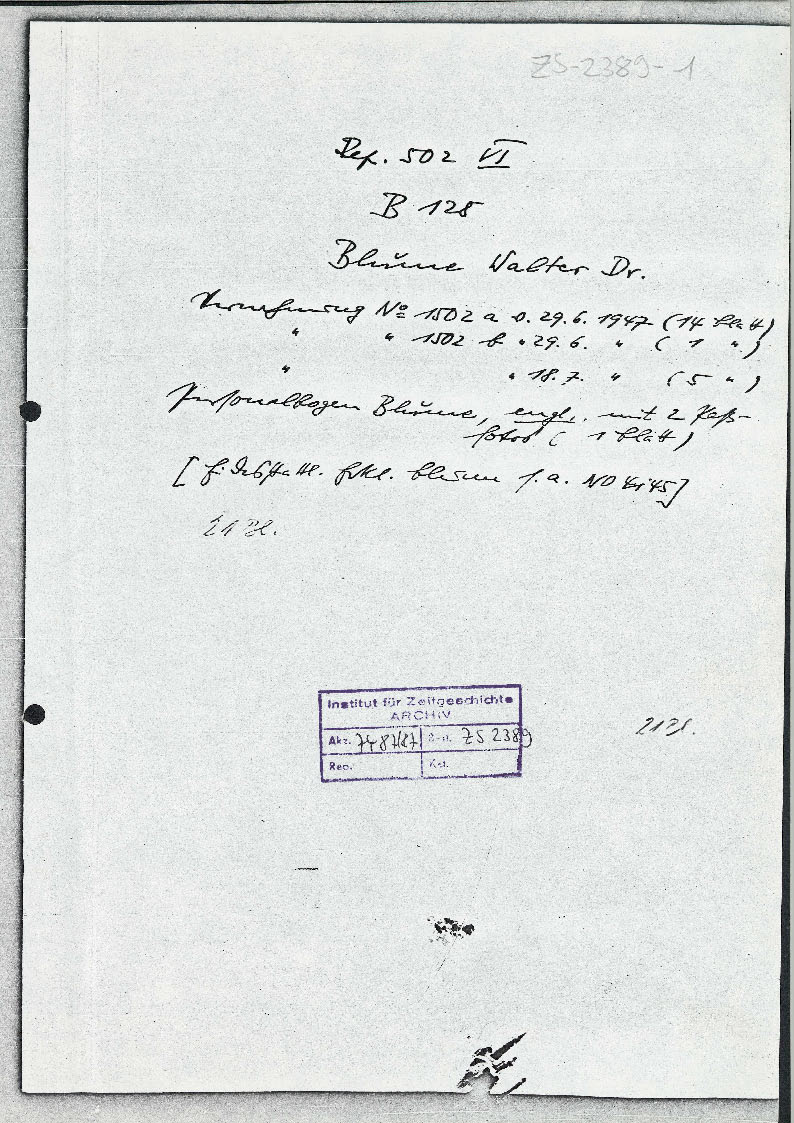 ZS-2389-1
Rep. 502 VI
B 125
Blume Walter Dr.
Vernehmung No 1502 a v. 29.6.1947 (14 Blatt)
" " 1502 b " 29.6. " ( 1 " )
" " 18.7. " ( 5 " )
Personalbogen Blume, engl. mit 2 Paß-
fotos ( 1 Blatt )
[ Eidesstattl. Erkl. Blume s. a. NO 4145 ]
21 Bl.
Institut für Zeitgeschichte
ARCHIV
Akz. 7487/87 Best. ZS 2389
Rep. Kat.
21 Bl.